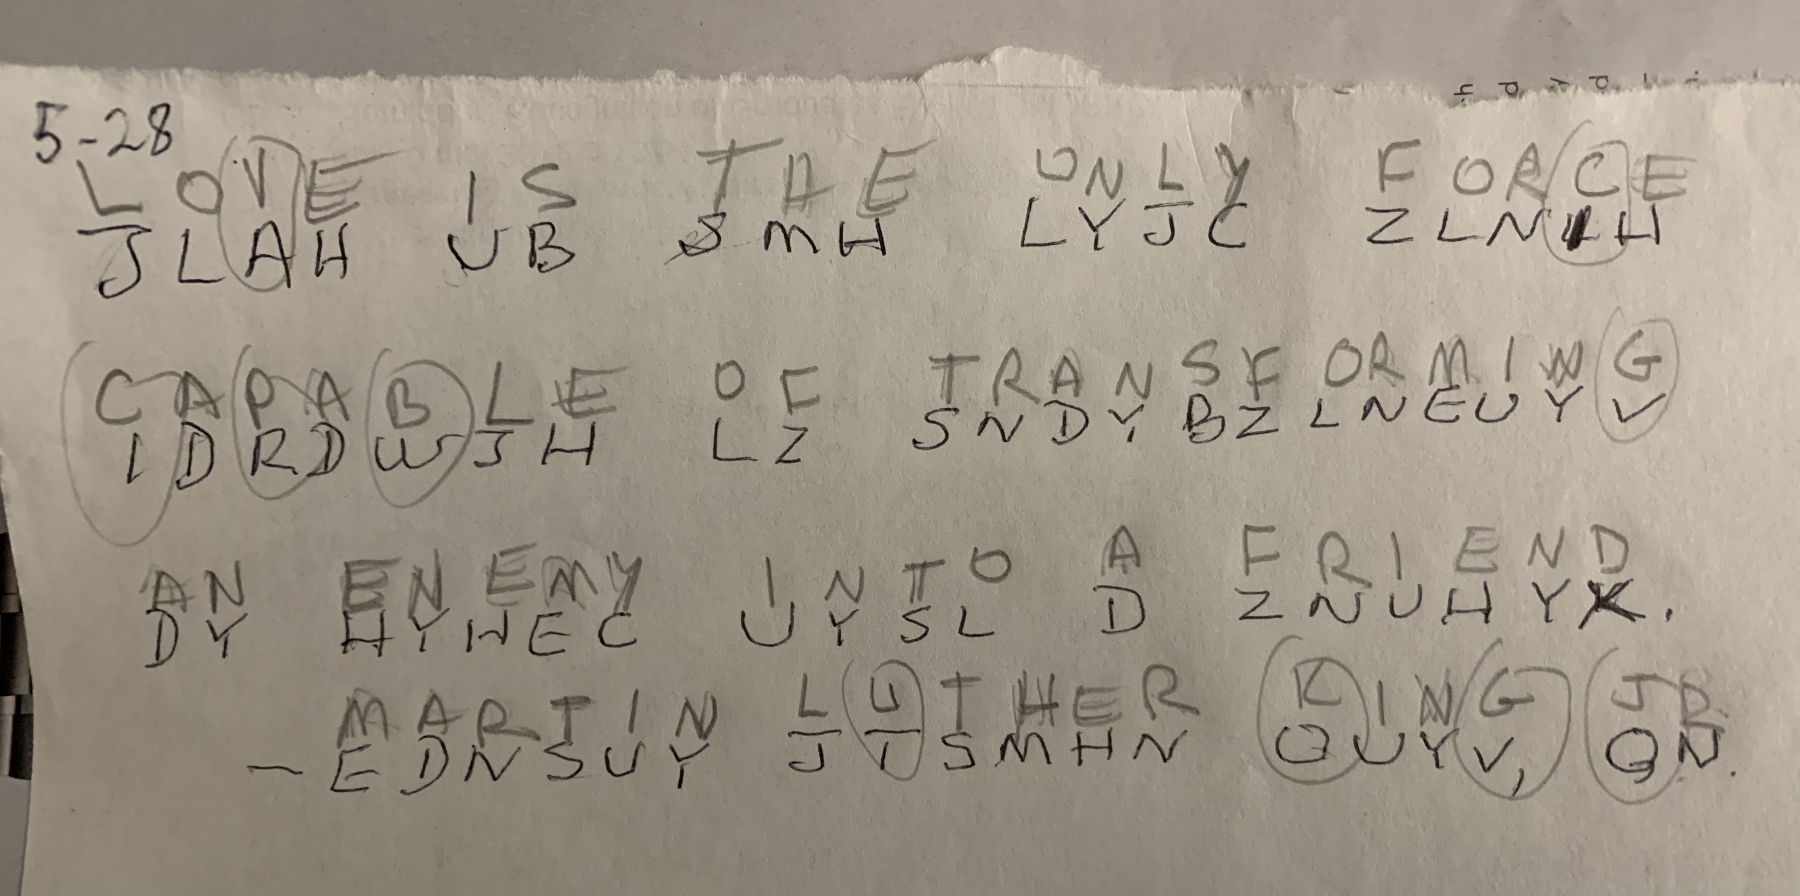 5-28
LOVE IS THE ONLY FORCE
JLAH UB SMH LYJC ZLNIH
CAPABLE OF TRANSFORMING
IDRDWJH LZ SNDYBZLNEUYV
AN ENEMY INTO A FRIEND
DY HYHEC UYSL D ZNUHYX.
MARTIN LUTHER KING JR.
- EDNSUY JTSMHN OUYV, QN.